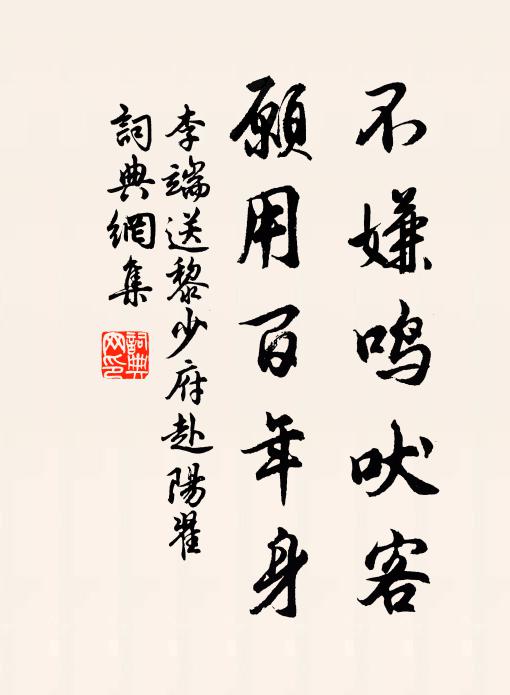 不嫌鸣吠客
願用百年身
李端送黎少府赴陽翟
詞典網集
詞典網印